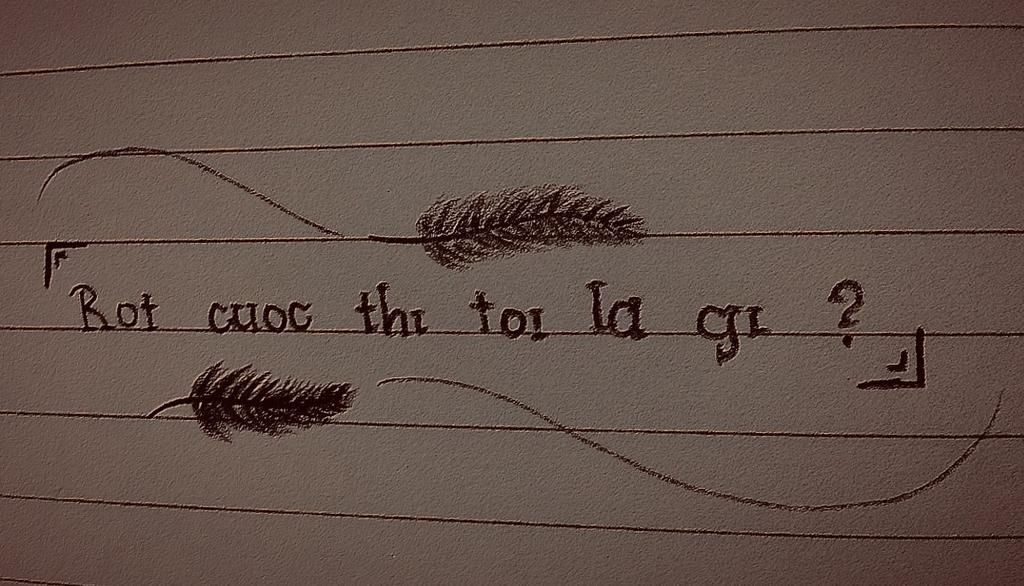 「Rot cuoc thi toi la gi ?」